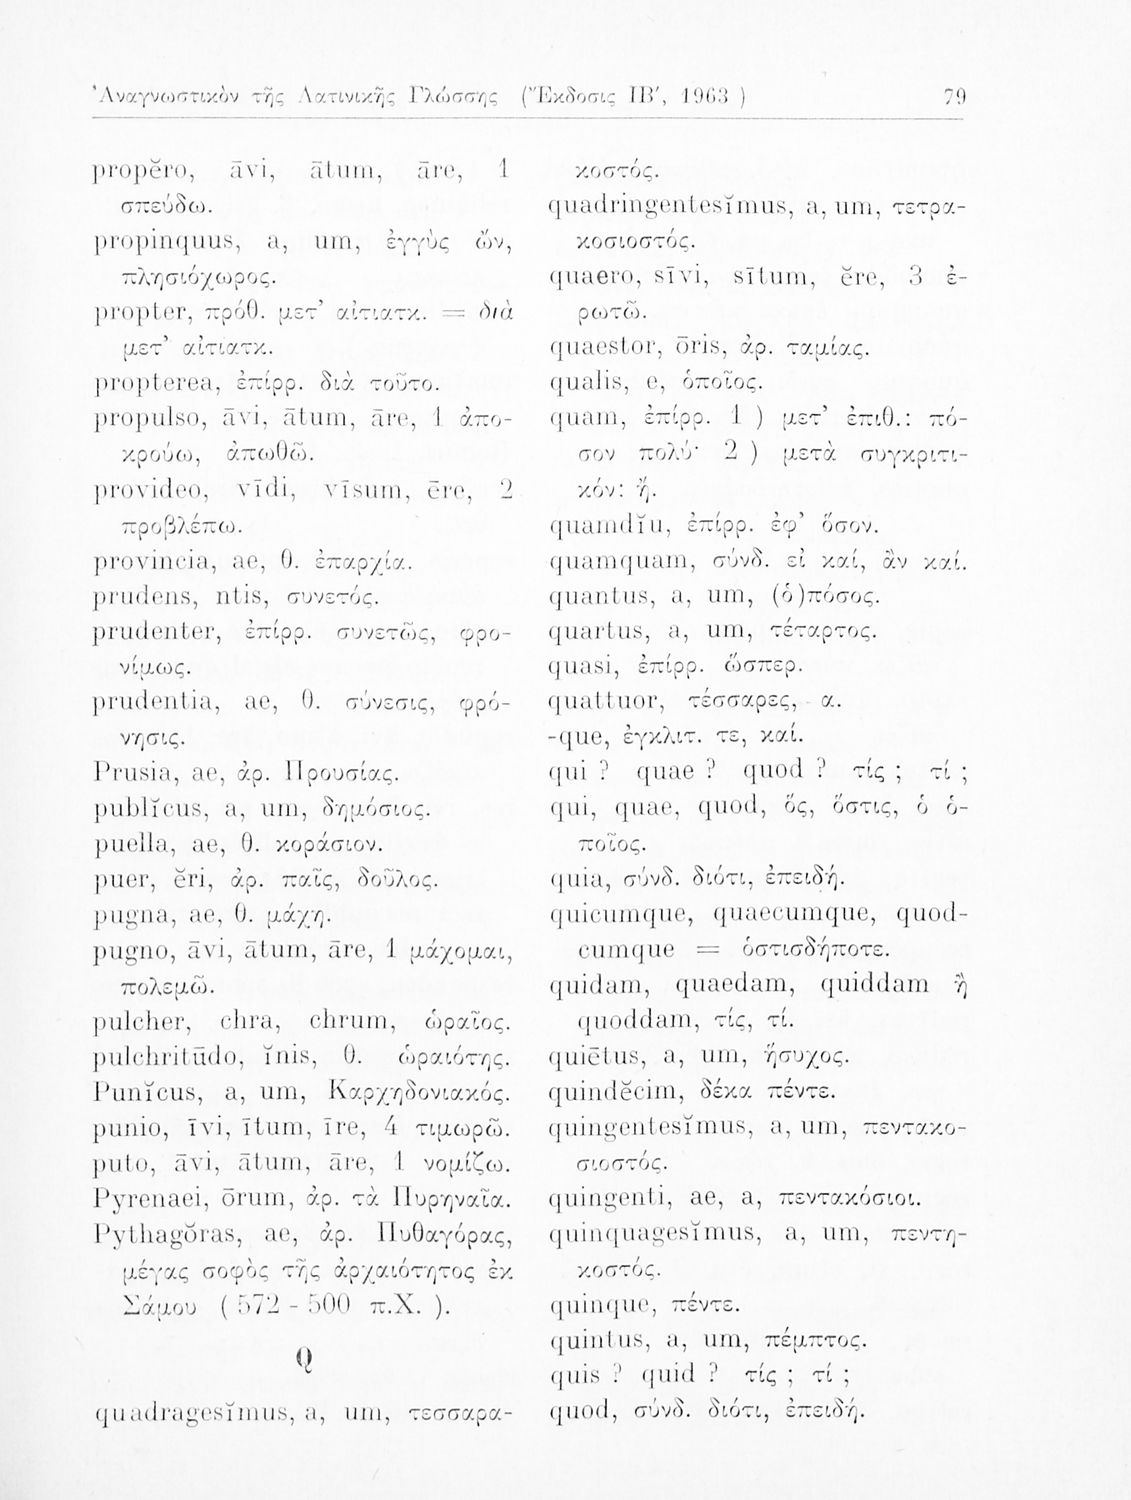 Ἀναγνωστικὸν τῆς Λατινικῆς Γλώσσης (Ἔκδοσις ΙΒ′, 1963 ) 79
propĕro, āvi, ātum, āre, 1
σπεύδω.
propinquus, a, um, ἐγγὺς ὤν,
πλησιόχωρος.
propter, πρόθ. μετ’ αἰτιατκ. = διὰ
μετ’ αἰτιατκ.
propterea, ἐπίρρ. διὰ τοῦτο.
propulso, āvi, ātum, āre, 1 ἀπο-
κρούω, ἀπωθῶ.
provideo, vīdi, vīsum, ēre, 2
προβλέπω.
provincia, ae, θ. ἐπαρχία.
prudens, ntis, συνετός.
prudenter, ἐπίρρ. συνετῶς, φρο-
νίμως.
prudentia, ae, θ. σύνεσις, φρό-
νησις.
Prusia, ae, ἀρ. Προυσίας.
publĭcus, a, um, δημόσιος.
puella, ae, θ. κοράσιον.
puer, ĕri, ἀρ. παῖς, δοῦλος.
pugna, ae, θ. μάχη.
pugno, āvi, ātum, āre, 1 μάχομαι,
πολεμῶ.
pulcher, chra, chrum, ὡραῖος.
pulchritūdo, ĭnis, θ. ὡραιότης.
Punĭcus, a, um, Καρχηδονιακός.
punio, īvi, ītum, īre, 4 τιμωρῶ.
puto, āvi, ātum, āre, 1 νομίζω.
Pyrenaei, ōrum, ἀρ. τὰ Πυρηναῖα.
Pythagŏras, ae, ἀρ. Πυθαγόρας,
μέγας σοφὸς τῆς ἀρχαιότητος ἐκ
Σάμου ( 572 - 500 π.Χ. ).
Q
quadragesĭmus, a, um, τεσσαρα-
κοστός.
quadringentesĭmus, a, um, τετρα-
κοσιοστός.
quaero, sīvi, sītum, ĕre, 3 ἐ-
ρωτῶ.
quaestor, ōris, ἀρ. ταμίας.
qualis, e, ὁποῖος.
quam, ἐπίρρ. 1 ) μετ’ ἐπιθ.: πό-
σον πολύ· 2 ) μετὰ συγκριτι-
κόν: ἤ.
quamdĭu, ἐπίρρ. ἐφ’ ὅσον.
quamquam, σύνδ. εἰ καί, ἂν καί.
quantus, a, um, (ὁ)πόσος.
quartus, a, um, τέταρτος.
quasi, ἐπίρρ. ὥσπερ.
quattuor, τέσσαρες, - α.
-que, ἐγκλιτ. τε, καί.
qui ? quae ? quod ? τίς ; τί ;
qui, quae, quod, ὅς, ὅστις, ὁ ὁ-
ποῖος.
quia, σύνδ. διότι, ἐπειδή.
quicumque, quaecumque, quod-
cumque = ὁστισδήποτε.
quidam, quaedam, quiddam ἢ
quoddam, τίς, τί.
quiētus, a, um, ἥσυχος.
quindĕcim, δέκα πέντε.
quingentesĭmus, a, um, πεντακο-
σιοστός.
quingenti, ae, a, πεντακόσιοι.
quinquagesĭmus, a, um, πεντη-
κοστός.
quinque, πέντε.
quintus, a, um, πέμπτος.
quis ? quid ? τίς ; τί ;
quod, σύνδ. διότι, ἐπειδή.